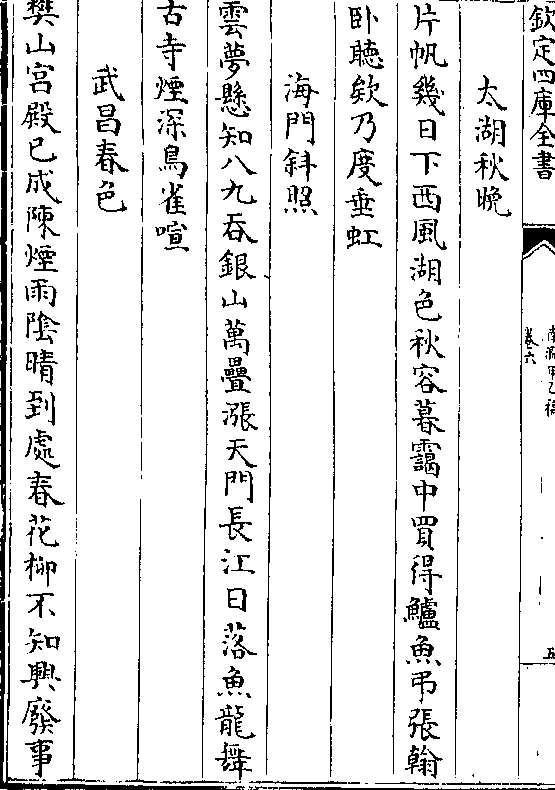 欽定四庫全書
卷六
五
太湖秋晚
片帆幾日下西風湖色秋容暮靄中買得鱸魚弔張翰
卧聽欸乃度垂虹
海門斜照
雲夢懸知八九吞銀山萬疊漲天門長江日落魚龍舞
古寺煙深鳥雀喧
武昌春色
樊山宮殿已成陳煙雨陰晴到處春花柳不知興廢事